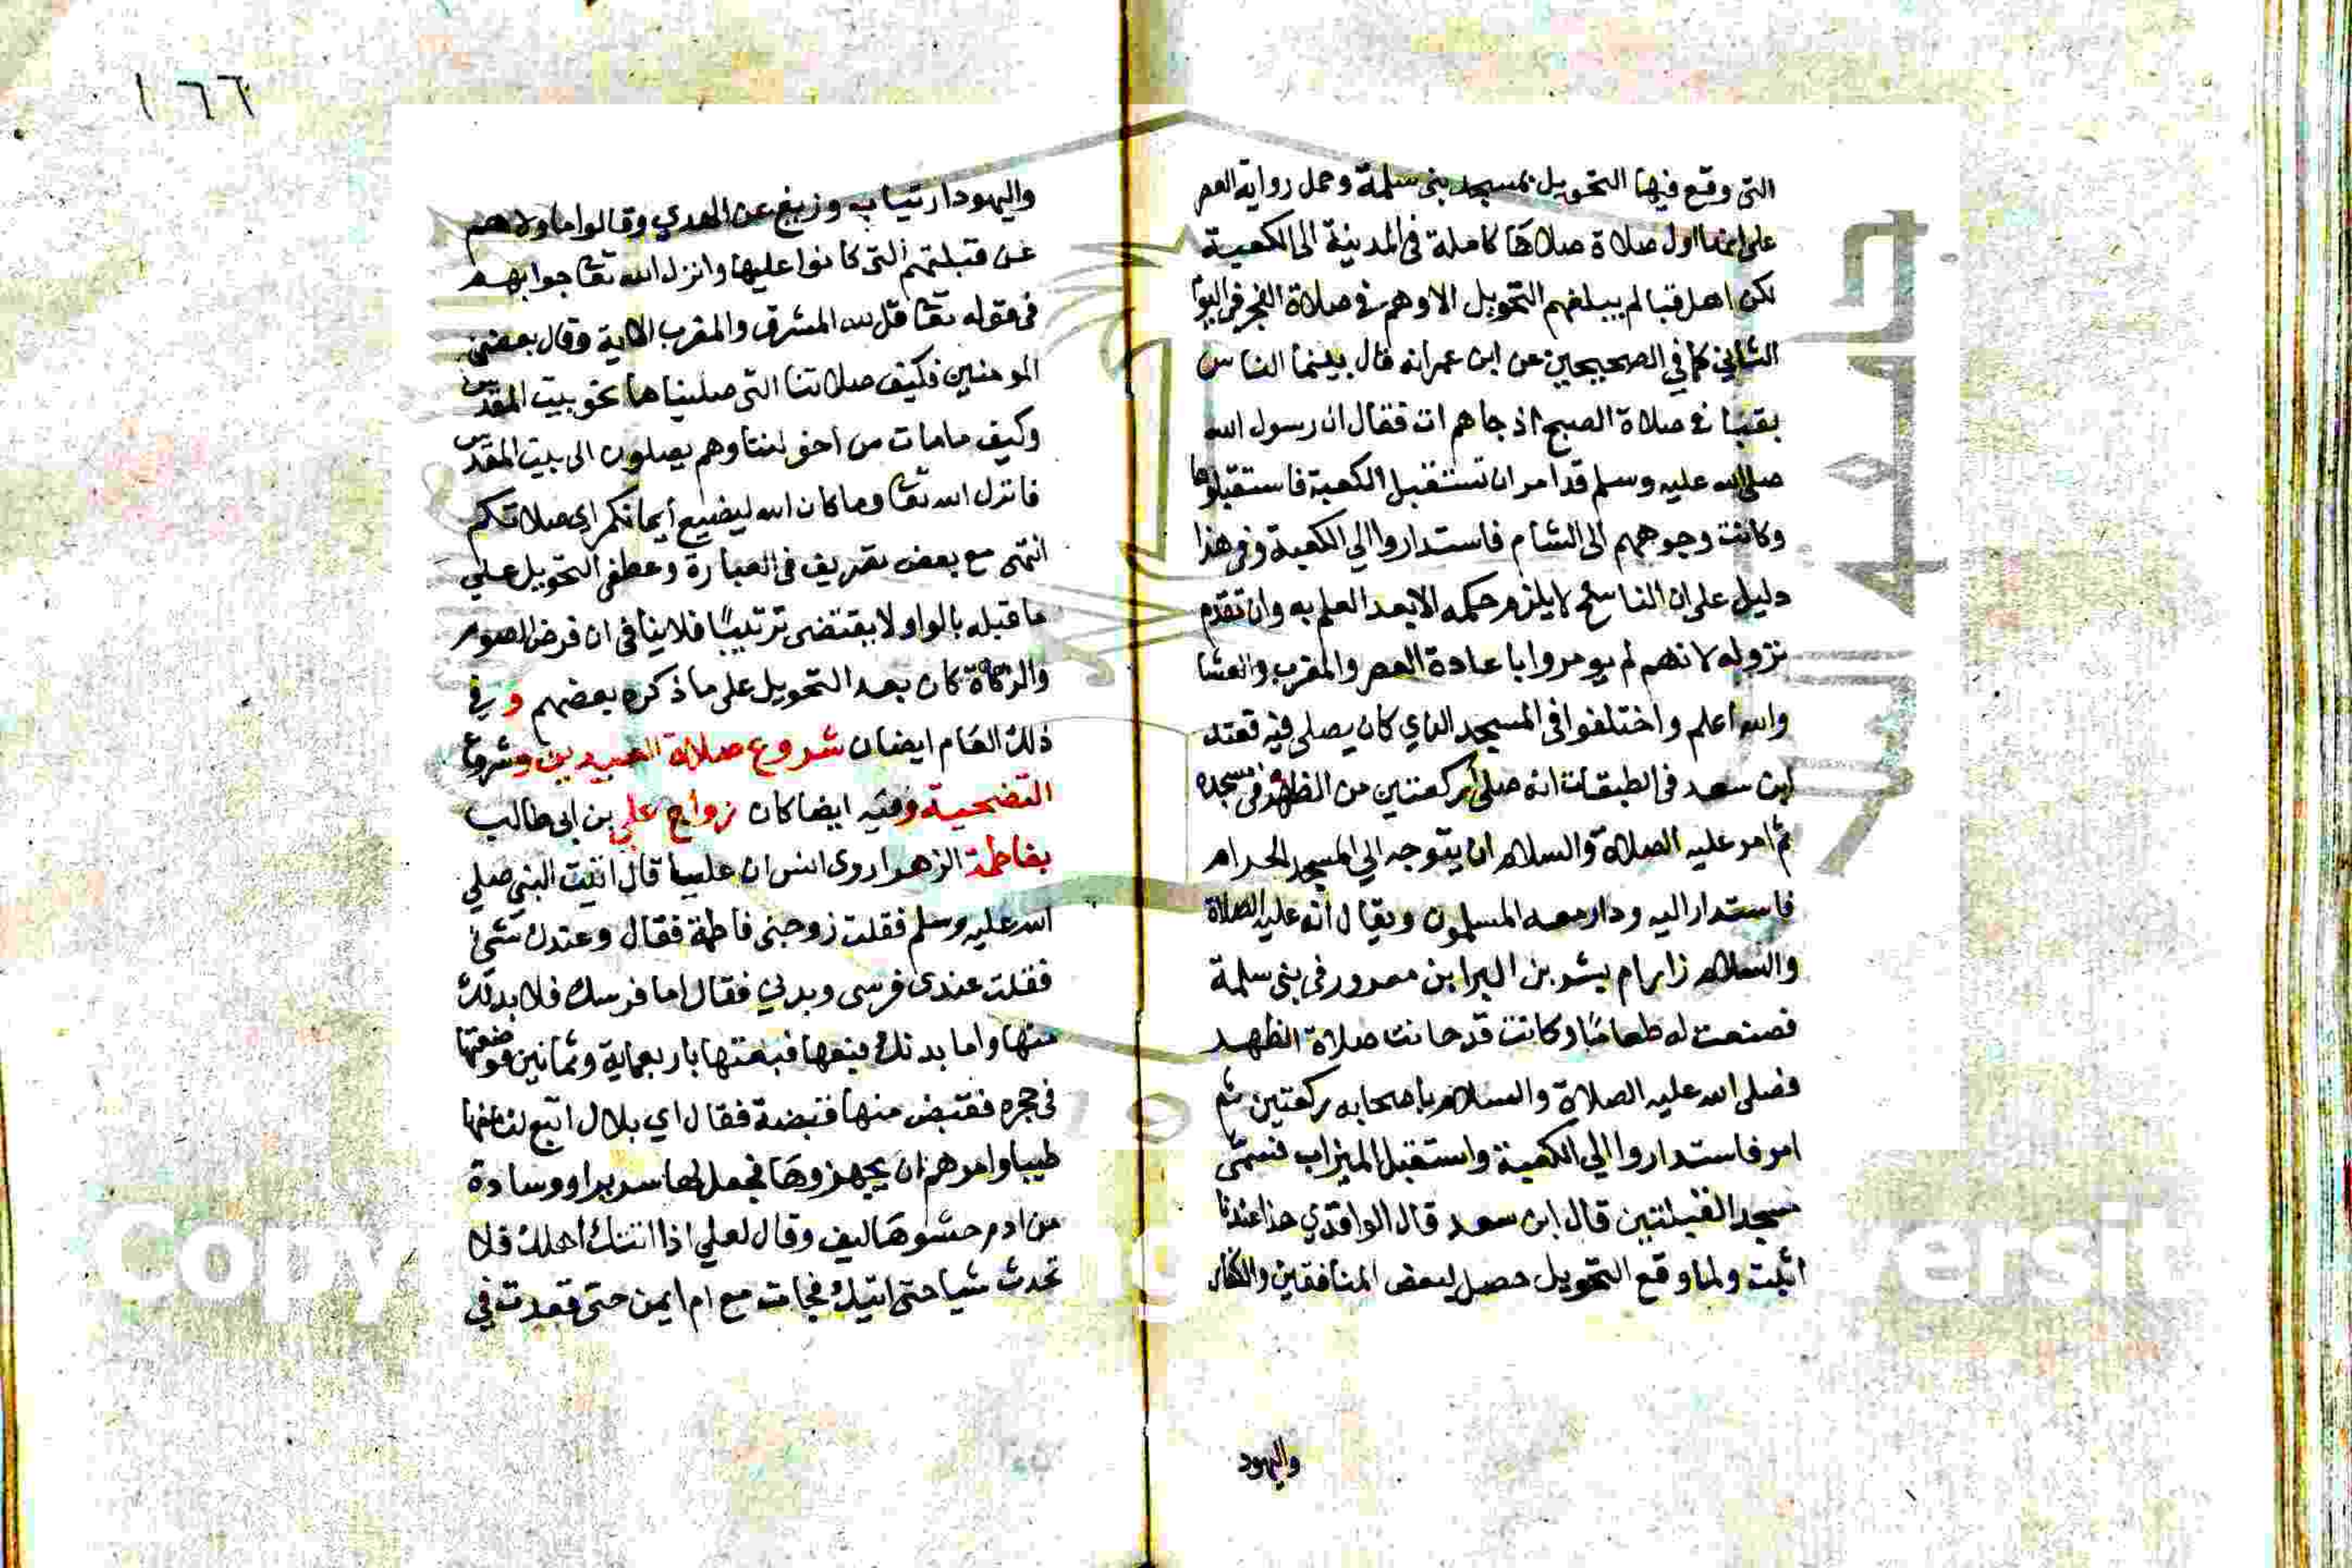 التى وقع فيها التحويل بمسجد بنى سلمة وحمل رواية العصر
على انها اول صلاة صلاها كاملة فى المدينة الى الكعبة
لكن اهل قبا لم يبلغهم التحويل الا وهم فى صلاة الفجر فى اليوم
الثانى كما فى الصحيحين عن ابن عمر انه قال بينما الناس
بقبا فى صلاة الصبح اذ جاهم ات فقال ان رسول الله
صلى الله عليه وسلم قد امر ان تستقبل الكعبة فاستقبلوها
وكانت وجوههم الى الشام فاستداروا الي الكعبة وفى هذا
دليل على ان الناسخ لا يلزم حكمه الا بعد العلم به وان تقدم
نزوله لانهم لم يومروا باعادة العصر والمغرب والعشا
والله اعلم واختلفوا فى المسجد الذي كان يصلى فيه فعند
ابن سعد فى الطبقات انه صلى ركعتين من الظهر فى مسجده
ثم امر عليه الصلاة والسلام ان يتوجه الي المسجد الحرام
فاستدار اليه ودار معه المسلمون ويقال انه عليه الصلاة
والسلام زار ام بشر بن البرا بن معرور فى بنى سلمة
فصنعت له طعاما وكانت قد حانت صلاة الظهر
فصلى الله عليه الصلاة والسلام باصحابه ركعتين ثم
امر فاستداروا الي الكعبة واستقبل الميزاب فسمى
مسجد القبلتين قال ابن سعد قال الواقدي هذا عندنا
اثبت ولما وقع التحويل حصل لبعض المنافقين والكفار
واليهود
١٦٦
واليهود ارتياب وزيغ عن الهدي وقالوا ما ولاهم
عن قبلتهم التى كانوا عليها وانزل الله تعا جوابهم
فى قوله تعا قل لله المشرق والمغرب الاية وقال بعض
المومنين فكيف صلاتنا التى صليناها نحو بيت المقدس
وكيف ما مات من اخواننا وهم يصلون الى بيت المقدس
فانزل الله تعا وما كان الله ليضيع أيمانكم اى صلاتكم
انتهى مع بعض تصريف فى العبارة وعطف التحويل على
ما قبله بالواو لا يقتضى ترتيبًا فلا ينافى ان فرض الصوم
والزكاة كان بعد التحويل على ما ذكره بعضهم و في
ذلك العام ايضا كان شروع صلاة العيدين وشروع
التضحية وفيه ايضا كان زواج علي بن ابى طالب
بفاطمة الزهرا روى انس ان عليا قال اتيت النبى صلى
الله عليه وسلم فقلت زوجنى فاطمة فقال وعندك شئ
فقلت عندى فرسى وبدني فقال اما فرسك فلا بد لك
منها واما بدنك فبعها فبعتها باربعماية وثمانين فوضعتها
فى حجره فقبض منها قبضة فقال اي بلال ابتع لنا بها
طيبا وامرهم ان يجهزوها فجعل لها سريرا ووسادة
من ادم حشوها ليف وقال لعلي اذا اتتك اهلك فلا
تحدث شيا حتى اتيك فجات مع ام ايمن حتى قعدت في